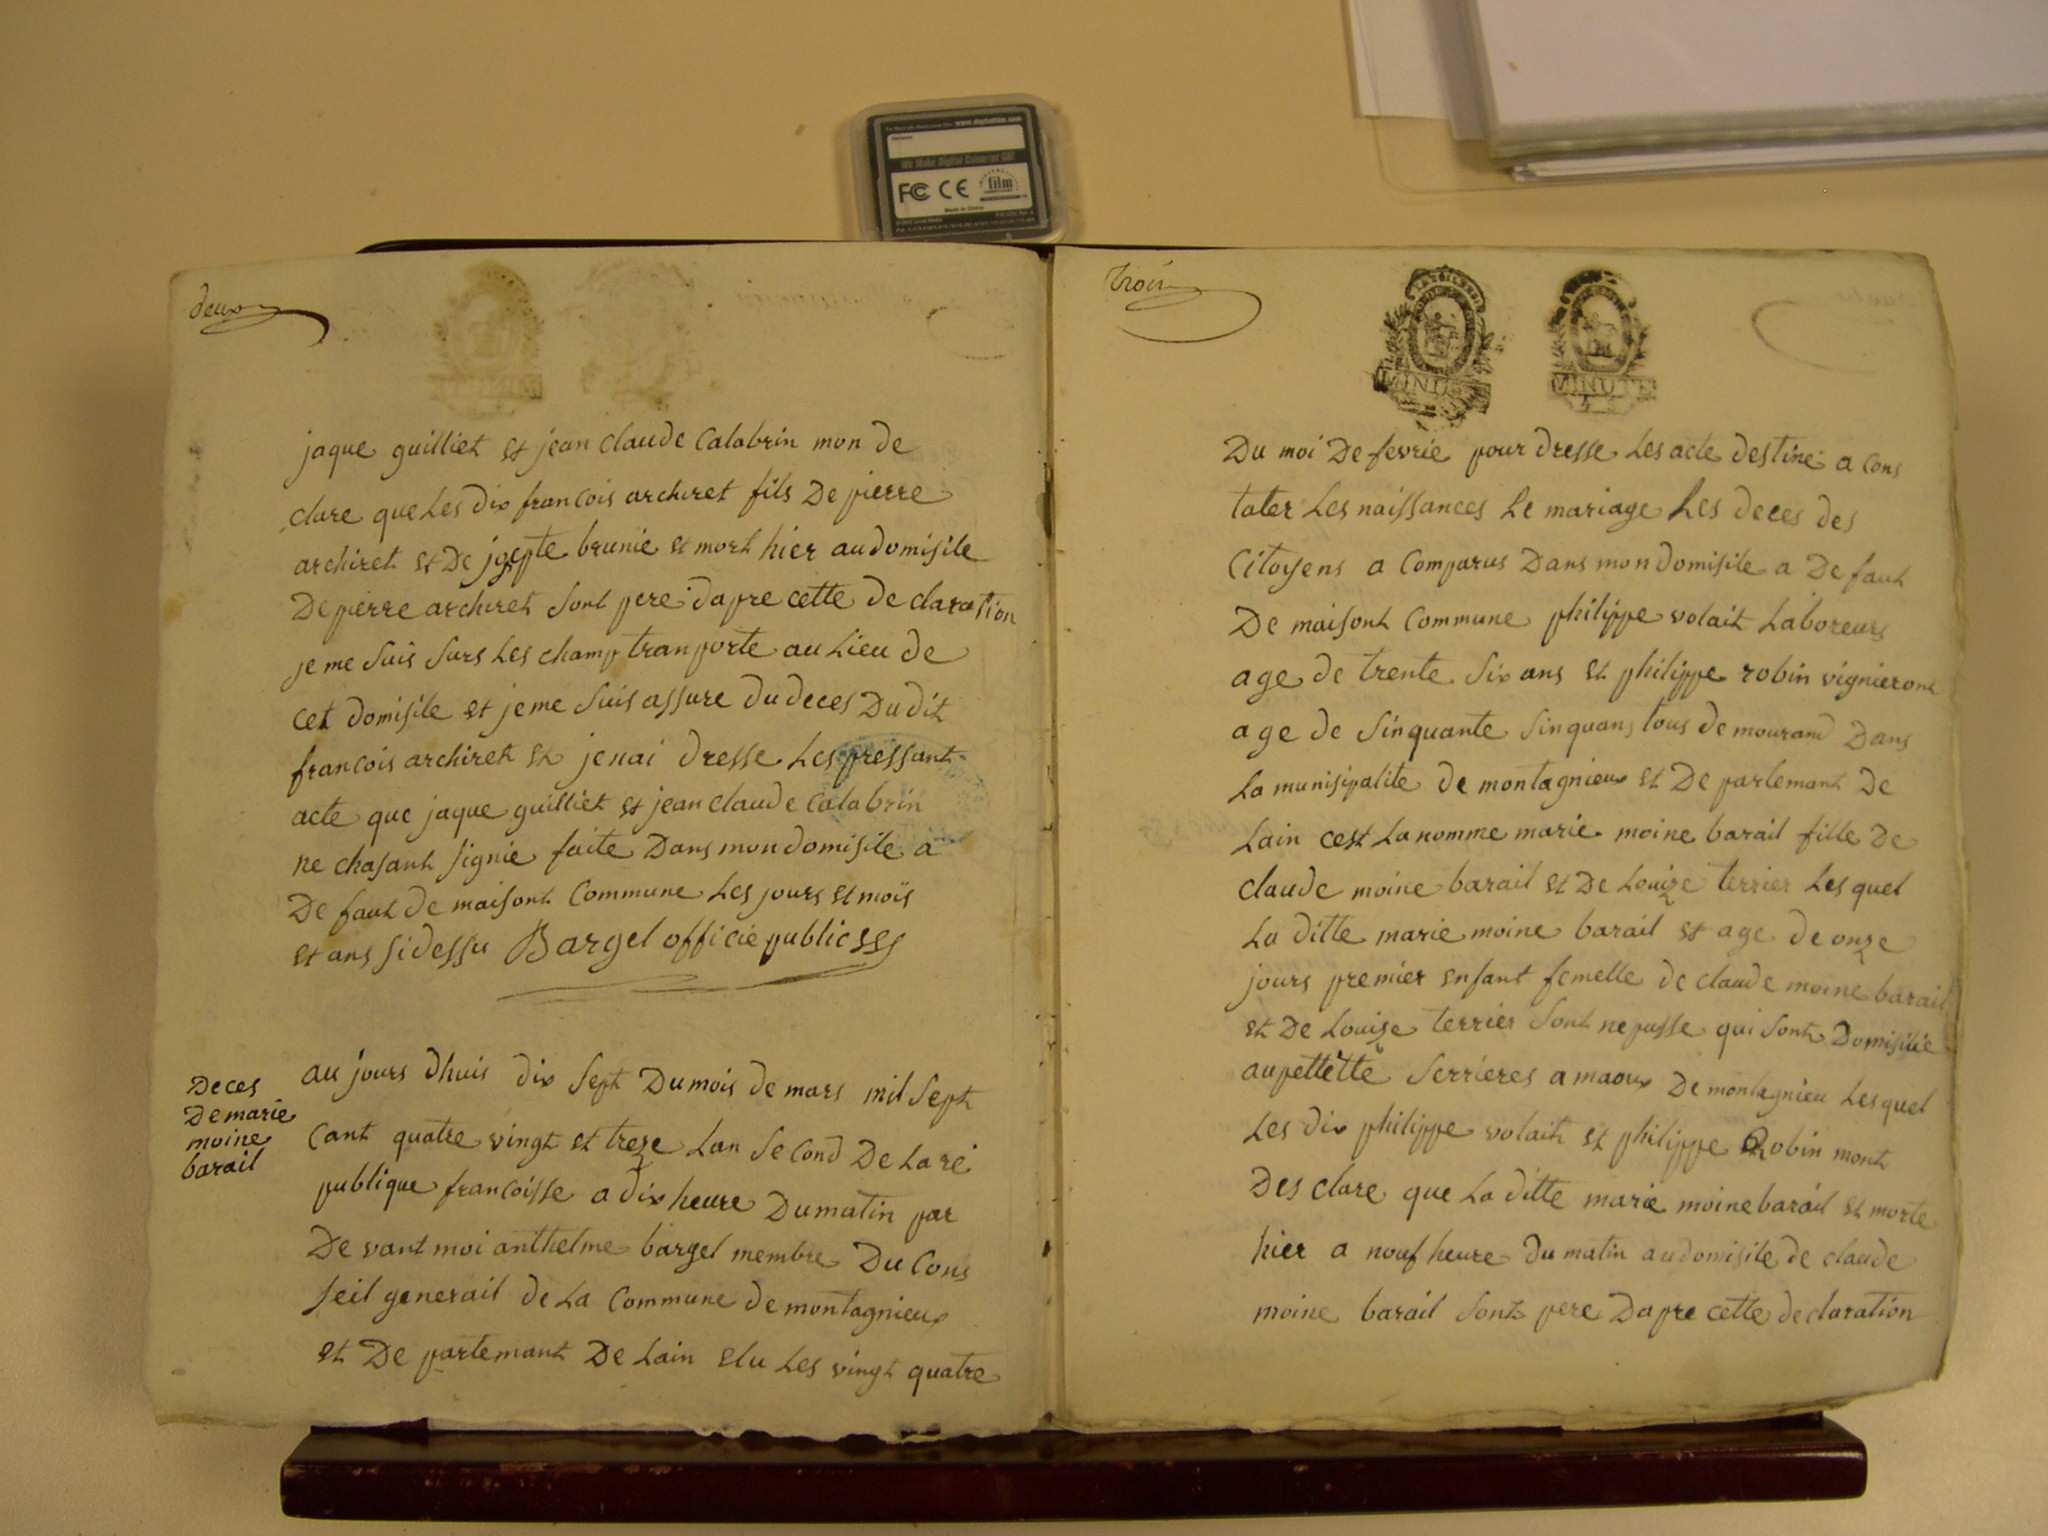 www.digitalfilm.com
We Make Digital Cameras GO!
FC CE
film
Made in China
deux
jaque guilliet et jean claude Calabrin mon de
clare que Les dix francois archiret fils De pierre
archiret et De josepte brunie et mort hier au domisile
De pierre archiret sont pere dapre cette de claration
je me suis surs Les champ tranporte au Lieu de
cet domisile et je me suis assure du deces Du dit
francois archiret et jenai dresse Les pressant
acte que jaque guilliet et jean claude Calabrin
ne chasant signie faite Dans mon domisile a
De faut de maisont Commune Les jours et moïs
et ans sidessu Bargel officie public
Deces
De marie
moine
barail
au jours dhuis dix sept Du mois de mars mil sept
Cant quatre vingt et treze Lan se Cond De La re
publique francoisse a dix heure Du matin par
De vant moi anthelme bargel membre Du Cons
seil generail de La Commune de montagnieux
et De partemant De Lain elu Les vingt quatre
trois
MINUTE
MINUTE
Du moi De fevrie pour dresse Les acte destine a Cons
tater Les naissances Le mariage Les deces des
Citoyens a Comparus Dans mon domisile a De faut
De maisont Commune philippe volait Laboreurs
age de trente six ans et philippe robin vignieront
age de sinquante sinquans tous de mourand Dans
La munisipalite de montagnieux et De partemant De
Lain cest La nomme marie moine barail fille De
claude moine barail et De Louize terrier Les quel
La ditte marie moine barail et age de onze
jours premier enfant femelle de claude moine barail
et De Louise terrier sont ne passe qui sont Domisilie
au pettette serrieres a maoux De montagnieu Les quel
Les dix philippe volait et philippe Robin mont
Des clare que La ditte marie moine barail et morte
hier a nouf heure du matin au domisile de claude
moine barail sont pere Dapre cette declaration